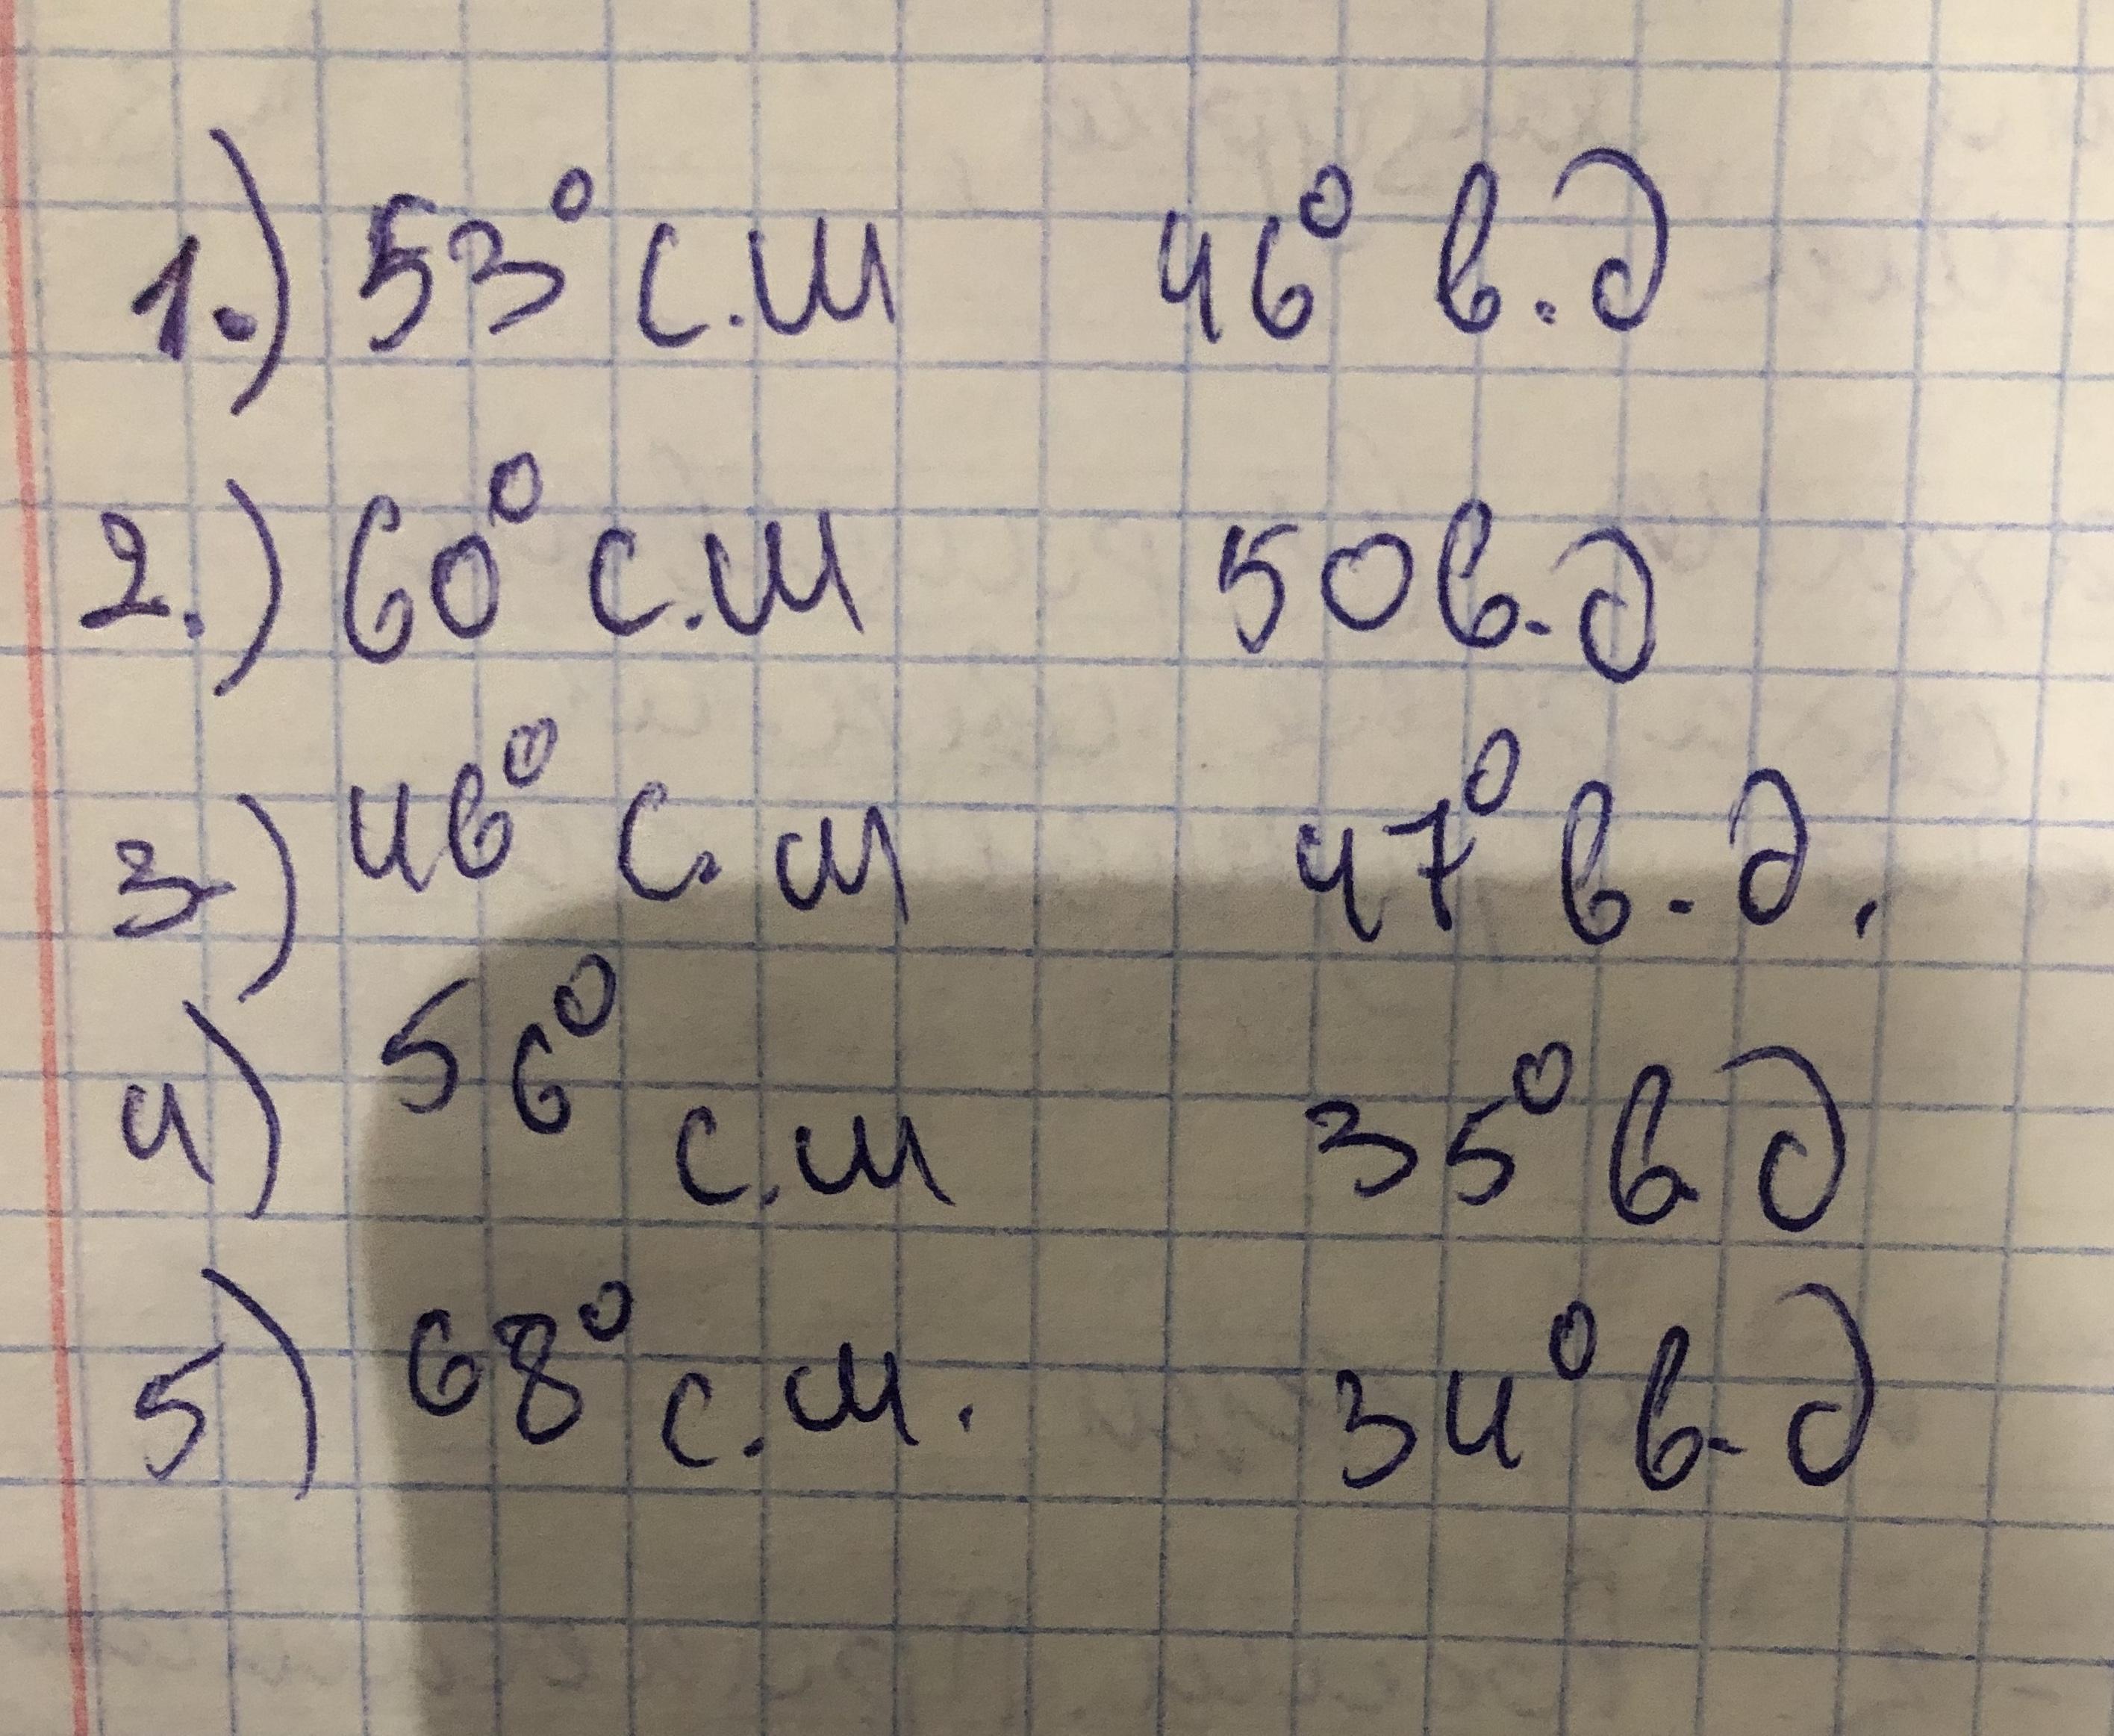 1.) 53° с.ш 46° в.д
2.) 60° с.ш 50 в.д
3.) 46° с.ш 47° в.д.
4) 56° с.ш 35° в.д
5) 68° с.ш. 34° в.д